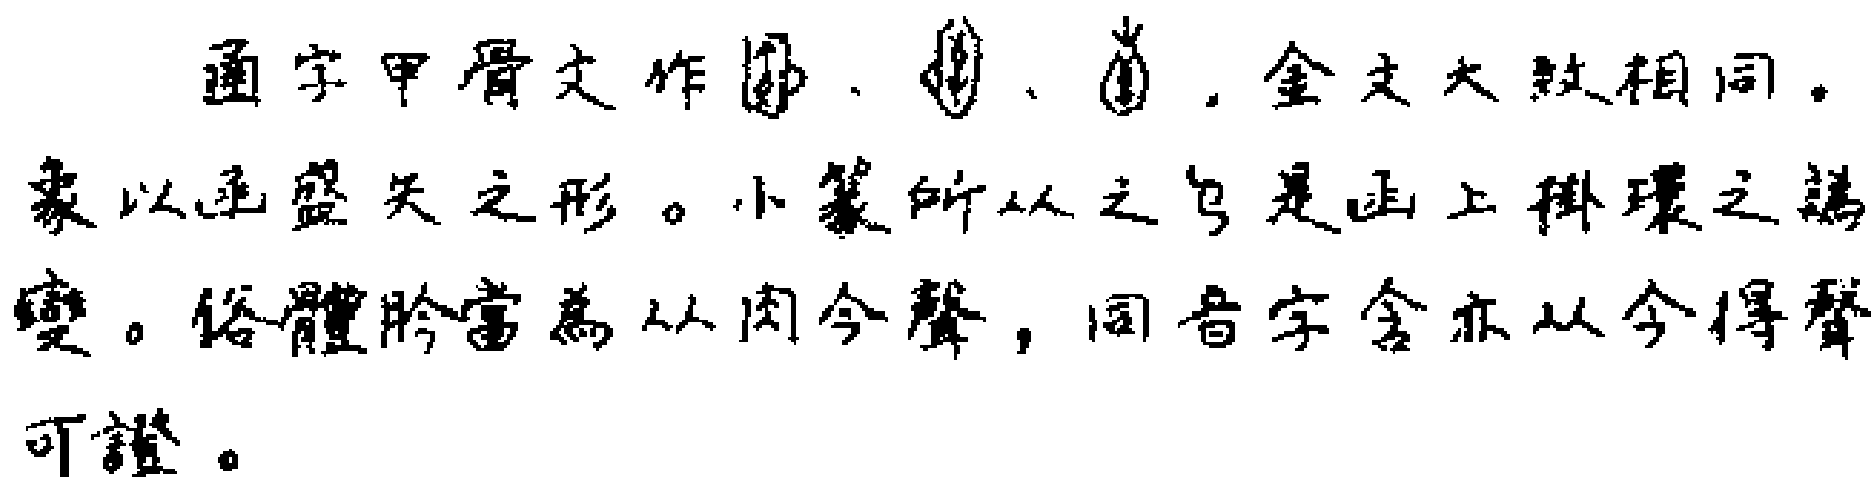 圅字甲骨文作、、,金文大致相同。
象以函盛矢之形。小篆所从之㔾是函上掛環之譌
變。俗體肣當為从肉今聲,同音字含亦从今得聲
可證。